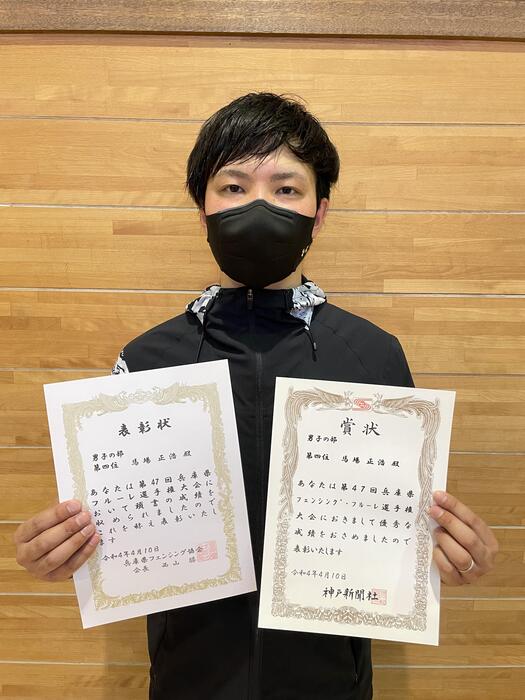 表彰状
男子の部
第四位 馬場正浩殿
あなたは第47回兵庫県
フルーレ選手権大会に
おいて頭書の成績を
収められましたので
これを称え表彰いたし
ます
令和4年4月10日
兵庫県フェンシング協会
会長
賞状
男子の部
第四位 馬場正浩殿
あなたは第47回兵庫県
フェンシング・フルーレ選手権
大会におきまして優秀な
成績をおさめましたので
表彰いたします
令和4年4月10日
神戸新聞社